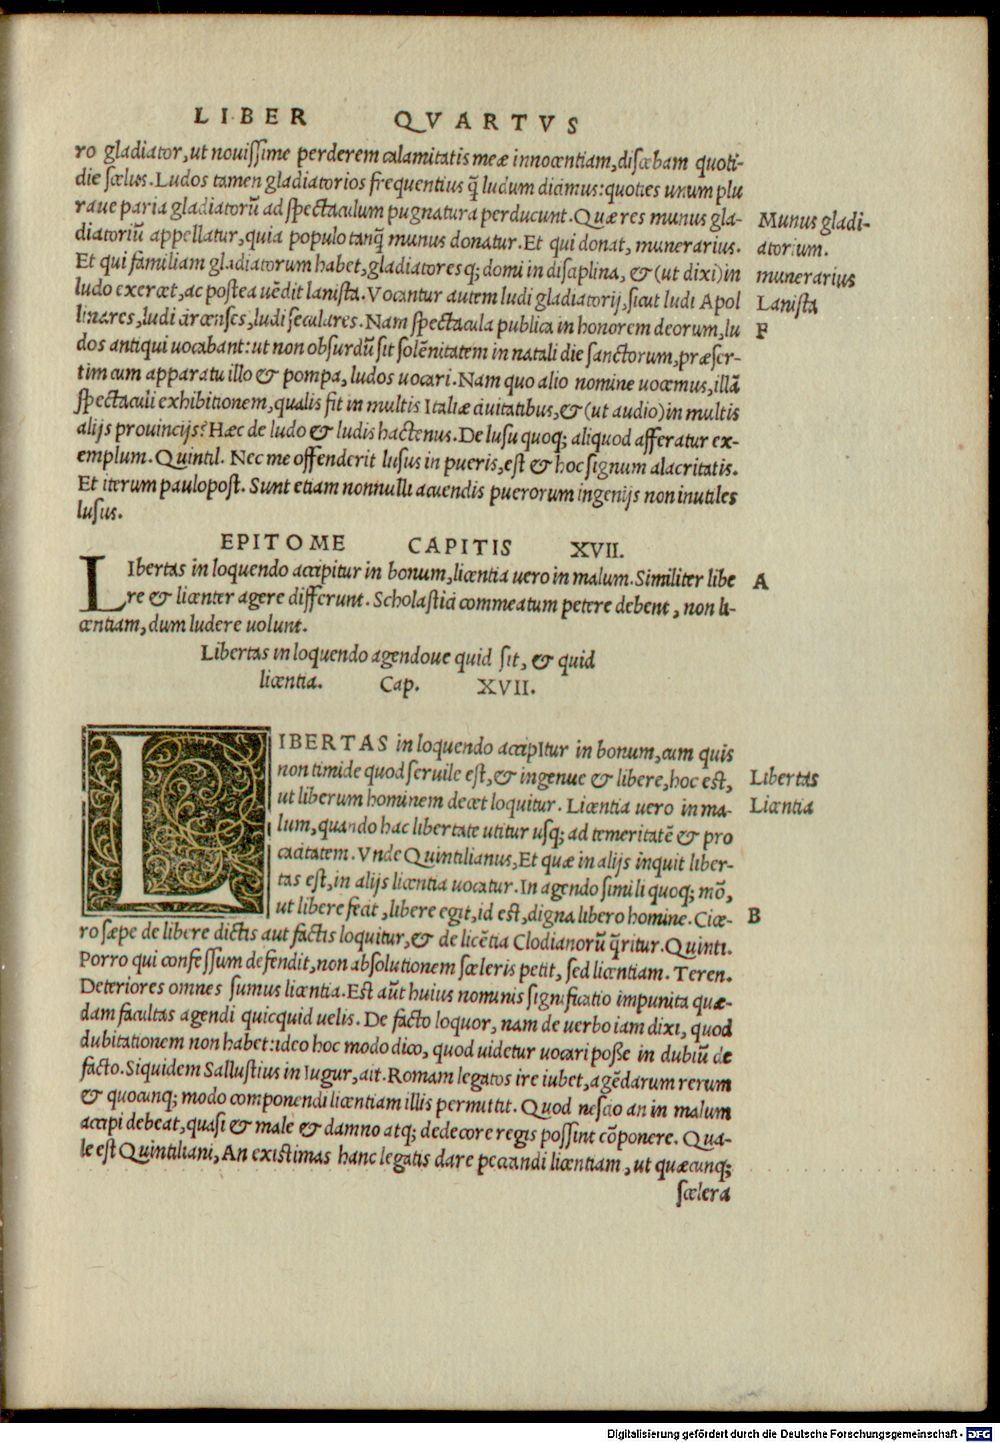 LIBER QVARTVS
ro gladiator, ut nouissime perderem calamitatis meæ innocentiam, discebam quoti-
die scelus. Ludos tamen gladiatorios frequentius q̃ ludum dicimus: quoties unum plu
raue paria gladiatorũ ad spectaculum pugnatura perducunt. Quæ res munus gla-
diatoriũ appellatur, quia populo tanq̃ munus donatur. Et qui donat, munerarius.
Et qui familiam gladiatorum habet, gladiatoresq; domi in disciplina, & (ut dixi) in
ludo exercet, ac postea uẽdit lanista. Vocantur autem ludi gladiatorij, sicut ludi Apol
linares, ludi circenses, ludi seculares. Nam spectacula publica in honorem deorum, lu
dos antiqui uocabant: ut non obsurdũ sit solẽnitatem in natali die sanctorum, præser-
tim cum apparatu illo & pompa, ludos uocari. Nam quo alio nomine uocemus, illã
spectaculi exhibitionem, qualis fit in multis Italiæ ciuitatibus, & (ut audio) in multis
alijs prouincijs? Hæc de ludo & ludis hactenus. De lusu quoq; aliquod afferatur ex-
emplum. Quintil. Nec me offenderit lusus in pueris, est & hoc signum alacritatis.
Et iterum paulopost. Sunt etiam nonnulli acuendis puerorum ingenijs non inutiles
lusus.
Munus gladi-
atorium.
munerarius
Lanista
F
EPITOME CAPITIS XVII.
LIbertas in loquendo accipitur in bonum, licentia uero in malum. Similiter libe
re & licenter agere differunt. Scholastici commeatum petere debent, non li-
centiam, dum ludere uolunt.
A
Libertas in loquendo agendoue quid sit, & quid
licentia. Cap. XVII.
LIBERTAS in loquendo accipItur in bonum, cum quis
non timide quod seruile est, & ingenue & libere, hoc est,
ut liberum hominem decet loquitur. Licentia uero in ma-
lum, quando hac libertate utitur usq; ad temeritatẽ & pro
cacitatem. Vnde Quintilianus, Et quæ in alijs inquit liber-
tas est, in alijs licentia uocatur. In agendo simili quoq; mõ,
ut libere fecit, libere egit, id est, digna libero homine. Cice-
ro sæpe de libere dictis aut factis loquitur, & de licẽtia Clodianorũ q̃ritur. Quinti.
Porro qui confessum defendit, non absolutionem sceleris petit, sed licentiam. Teren.
Deteriores omnes sumus licentia. Est aũt huius nominis significatio impunita quæ-
dam facultas agendi quicquid uelis. De facto loquor, nam de uerbo iam dixi, quod
dubitationem non habet: ideo hoc modo dico, quod uidetur uocari posse in dubiũ de
facto. Siquidem Sallustius in Iugur, ait. Romam legatos ire iubet, agẽdarum rerum
& quocunq; modo componendi licentiam illis permittit. Quod nescio an in malum
accipi debeat, quasi & male & damno atq; dedecore regis possint cõponere. Qua-
le est Quintiliani, An existimas hanc legatis dare peccandi licentiam, ut quæcunq;
scelera
Libertas
Licentia
B
Digitalisierung gefördert durch die Deutsche Forschungsgemeinschaft - DFG